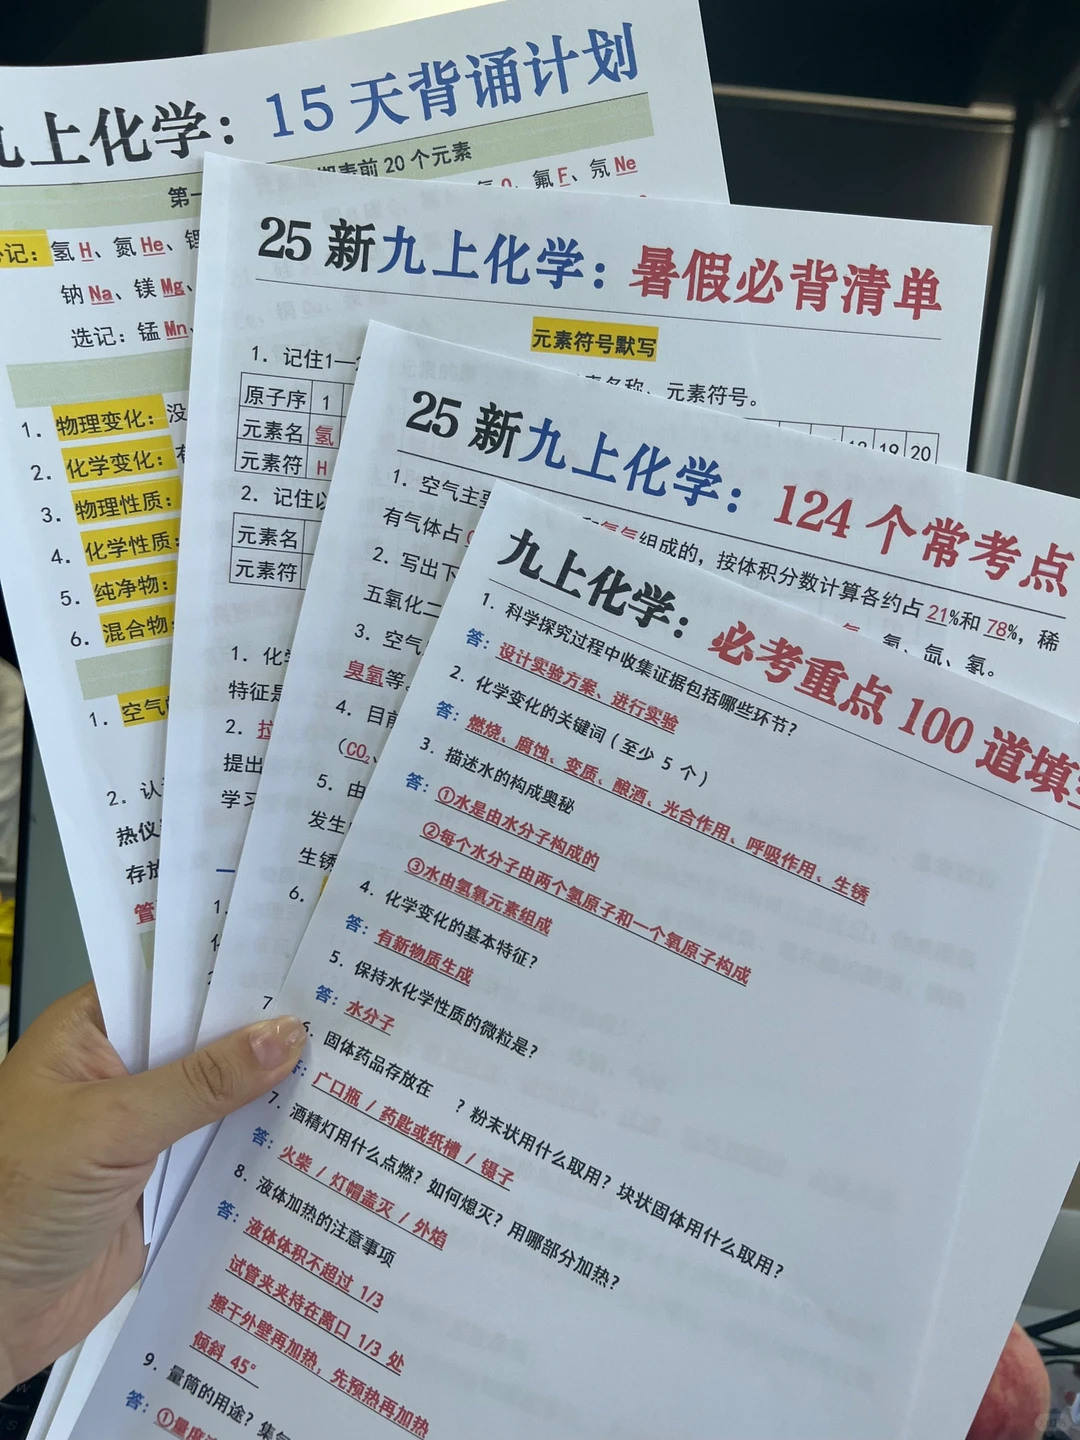 九上化学：15天背诵计划
期表前20个元素
第一
必记：氢H、氮He、锂
O、氟F、氖Ne
钠Na、镁Mg、
选记：锰Mn、
1. 物理变化：没
2. 化学变化：有
3. 物理性质：
4. 化学性质：
5. 纯净物：
6. 混合物：
1. 空气
2. 认
热仪
存放
管
25新九上化学：暑假必背清单
元素符号默写
1. 记住1—
元素名称、元素符号。
原子序 1
19 20
元素名 氢
元素符 H
2. 记住以
元素名
元素符
1. 化学
特征是
2. 拉
提出
学习
1.
25新九上化学：124个常考点
1. 空气主要
组成的，按体积分数计算各约占21%和78%，稀
有气体占
氦、氖、氩、氪、氙、氡。
2. 写出下
五氧化二
3. 空气
臭氧等。
4. 目前
（CO₂、
5. 由
发生
生锈
6.
7
九上化学：必考重点100道填空
1. 科学探究过程中收集证据包括哪些环节？
答：设计实验方案、进行实验
2. 化学变化的关键词（至少 5 个）
答：燃烧、腐蚀、变质、酿酒、光合作用、呼吸作用、生锈
3. 描述水的构成奥秘
答：①水是由水分子构成的
②每个水分子由两个氢原子和一个氧原子构成
③水由氢氧元素组成
4. 化学变化的基本特征？
答：有新物质生成
5. 保持水化学性质的微粒是？
答：水分子
6. 固体药品存放在 ？粉末状用什么取用？块状固体用什么取用？
答：广口瓶 / 药匙或纸槽 / 镊子
7. 酒精灯用什么点燃？如何熄灭？用哪部分加热？
答：火柴 / 灯帽盖灭 / 外焰
8. 液体加热的注意事项
答：液体体积不超过 1/3
试管夹夹持在离口 1/3 处
擦干外壁再加热，先预热再加热
倾斜 45°
9. 量筒的用途？集气
答：①量度